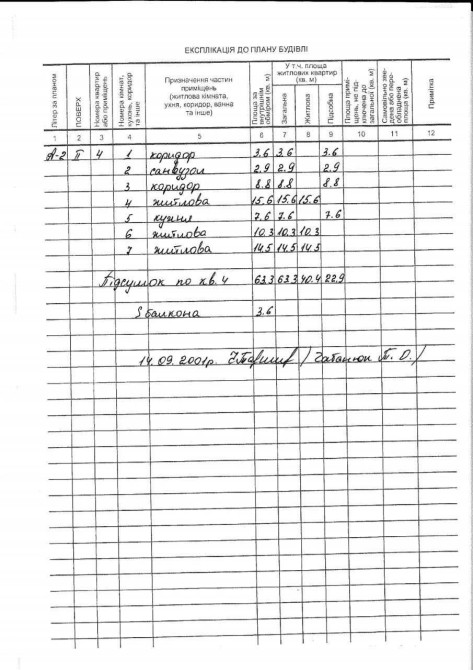 ЕКСПЛІКАЦІЯ ДО ПЛАНУ БУДІВЛІ
Літер за планом
ПОВЕРХ
Номери квартир або приміщень
Номери кімнат, кухонь, коридор та інше
Призначення частин приміщень (житлова кімната, ухня, коридор, ванна та інше)
Площа за внутрішнім обміром (кв. м)
У т.ч. площа житлових квартир (кв. м)
Загальна
Житлова
Підсобна
Площа примі- щень, не під- ключена до загальної (кв. м)
Самовільно зве- дена або пере- обладнана площа (кв. м)
Примітка
1 2 3 4 5 6 7 8 9 10 11 12
А-2 II 4 1 коридор 3.6 3.6 3.6
2 санвузол 2.9 2.9 2.9
3 коридор 8.8 8.8 8.8
4 житлова 15.6 15.6 15.6
5 кухня 7.6 7.6 7.6
6 житлова 10.3 10.3 10.3
7 житлова 14.5 14.5 14.5
Підсумок по кв. 4 63.3 63.3 40.4 22.9
S балкона 3.6
14.09.2001р. / Т. О. /